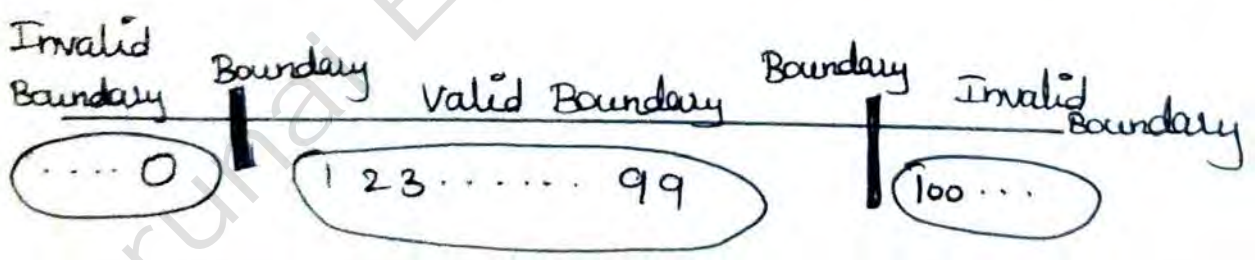 Invalid
Boundary
Boundary
Valid Boundary
Boundary
Invalid
Boundary
.... 0
1 2 3 ....... 99
100 ...